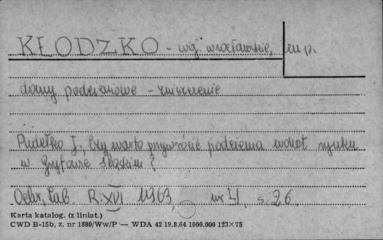 KŁODZKO - wg. wrocławskie, m p.
domy podcieniowe - zniszczenie
Pudełko J. Czy warto przywrócić podcienia wokół rynku
w Gryfowie Śląskim?
Ochr. Zab. R. XVI 1963 nr 4, s. 26.
Karta katalog. (z liniat.)
CWD B-15b, z. nr 1880/Ww/P — WDA 42 19.8.64 1000.000 123×75